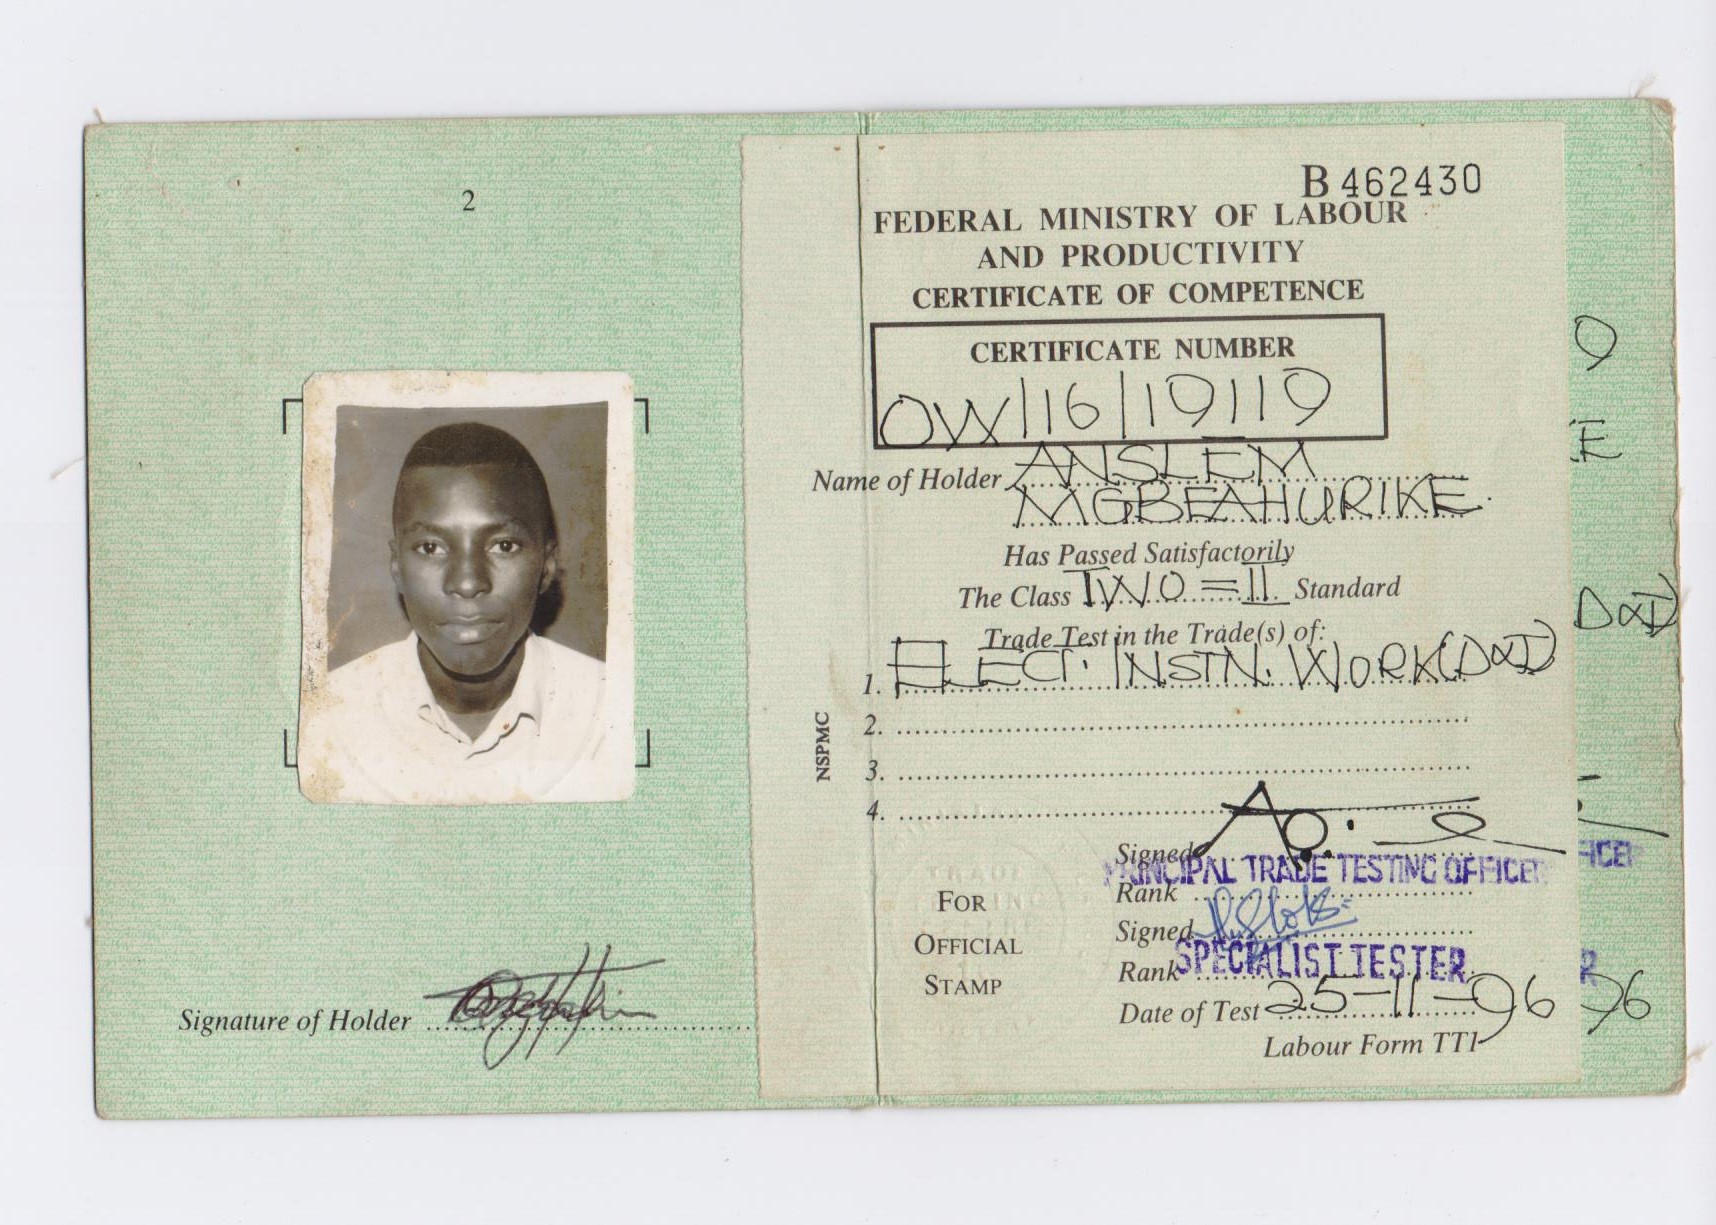 2
Signature of Holder
B 462430
FEDERAL MINISTRY OF LABOUR
AND PRODUCTIVITY
CERTIFICATE OF COMPETENCE
CERTIFICATE NUMBER
OW/16/19119
Name of Holder ANSLEM
MGBEAHURIKE
Has Passed Satisfactorily
The Class TWO = II Standard
Trade Test in the Trade(s) of:
1. ELECT. INSTN. WORK (D&I)
2.
3.
4.
NSPMC
Signed
PRINCIPAL TRADE TESTING OFFICER
Rank
Signed
Rank SPECIALIST TESTER
Date of Test 25-11-96
FOR
OFFICIAL
STAMP
Labour Form TT1
9
E
D&I)
FICER
R
96